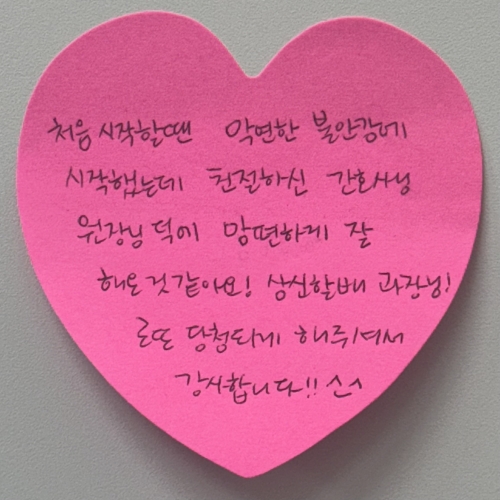 처음 시작할땐 막연한 불안감에
시작했는데 친절하신 간호사님
원장님 덕에 맘편하게 잘
해온것같아요! 삼신할배 과장님!
로또 당첨되게 해주셔서
감사합니다!! ^^